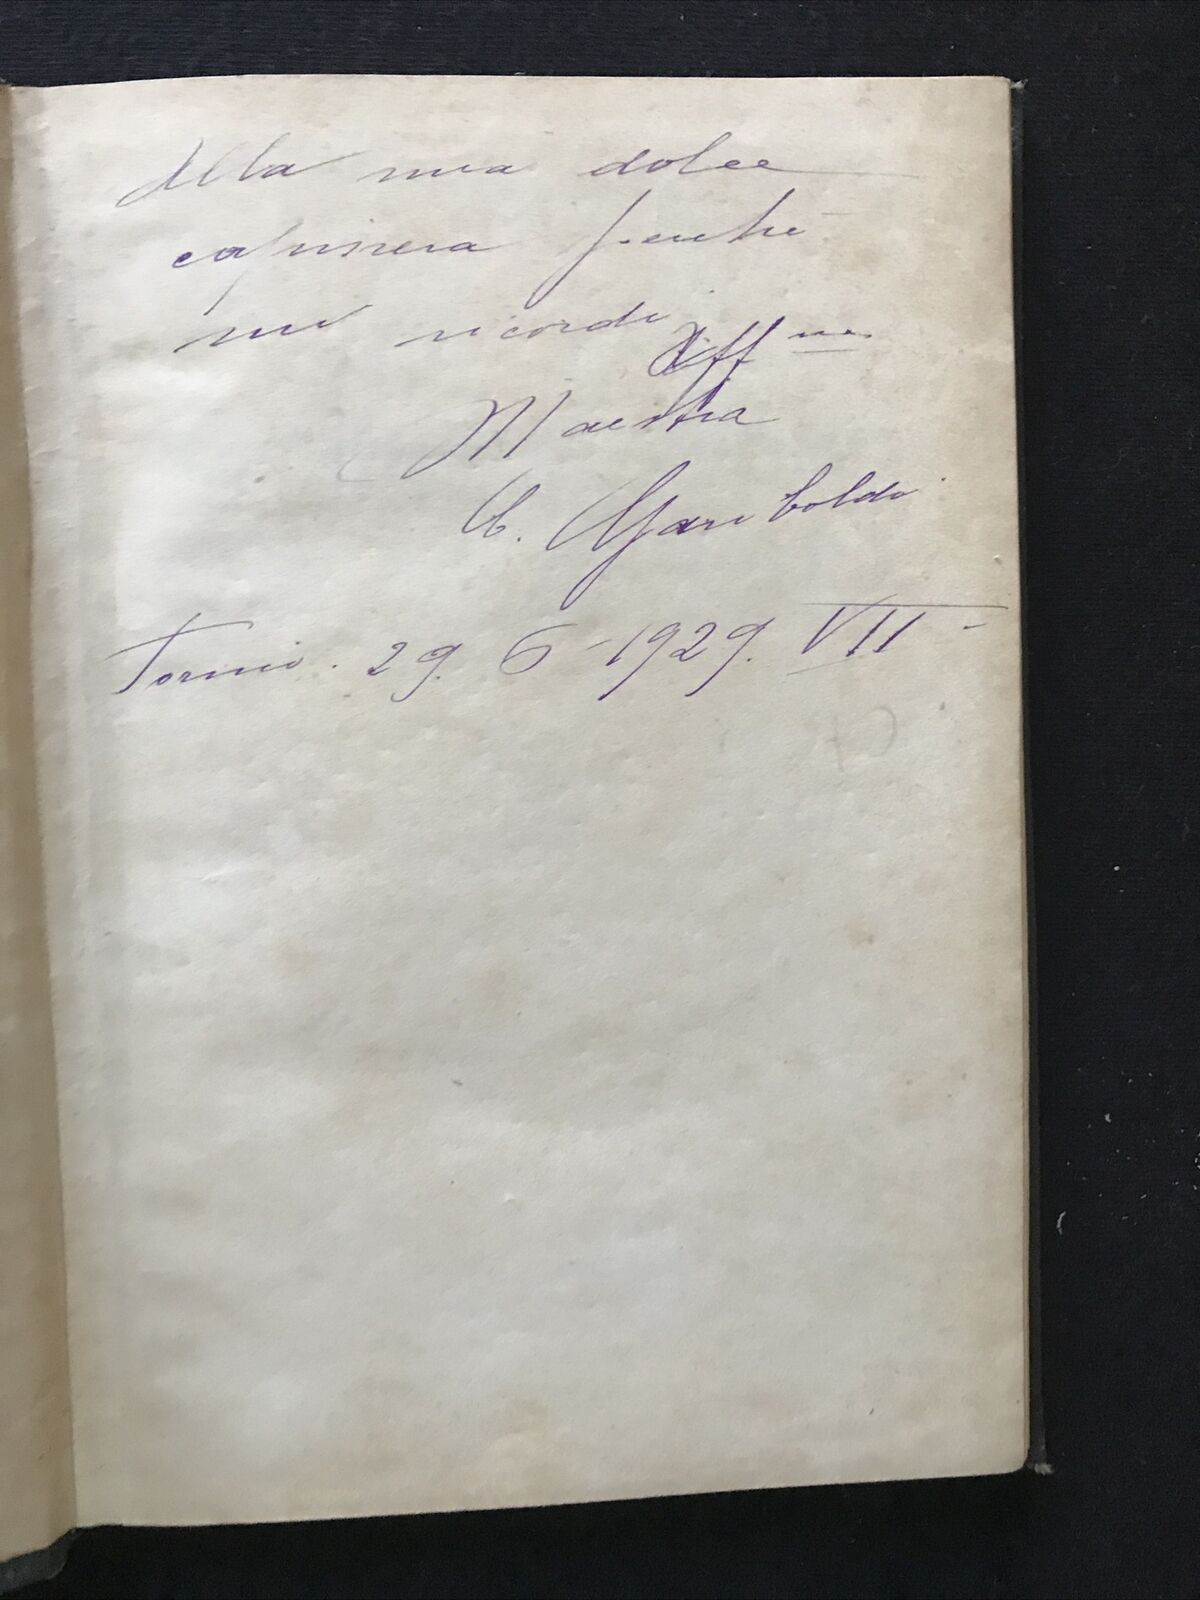 Alla mia dolce
capinera perché
mi ricordi
Aff ma
Maestra
Gariboldi
Torino. 29. 6 - 1929. VII -